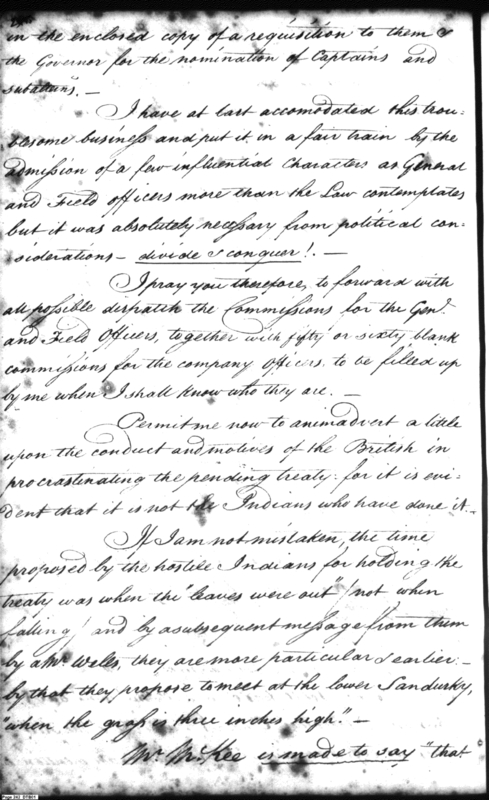 in the enclosed copy of a requisition to them &
the Governor for the nomination of Captains and
subalterns. —
I have at last accomodated this trou-
blesome business and put it in a fair train by the
admission of a few influential Characters as General
and Field officers more than the Law contemplates
but it was absolutely necessary from political con-
siderations — divide & conquer! . —
I pray you therefore, to forward with
all possible dispatch the Commissions for the Genl.
and Field Officers, together with fifty or sixty blank
commissions for the company officers, to be filled up
by me when I shall know who they are. —
Permit me now to animadvert a little
upon the conduct and motives of the British in
procrastinating the pending treaty: for it is evi-
dent that it is not the Indians who have done it —
If I am not mistaken, the time
proposed by the hostile Indians for holding the
treaty was when the "leaves were out" (not when
falling) and by a subsequent message from them
by a Mr. Wells, they are more particular & earlier. —
by that they propose to meet at the lower Sandusky,
"when the grass is three inches high." —
Mr. McKee is made to say "that
Page 243 071901